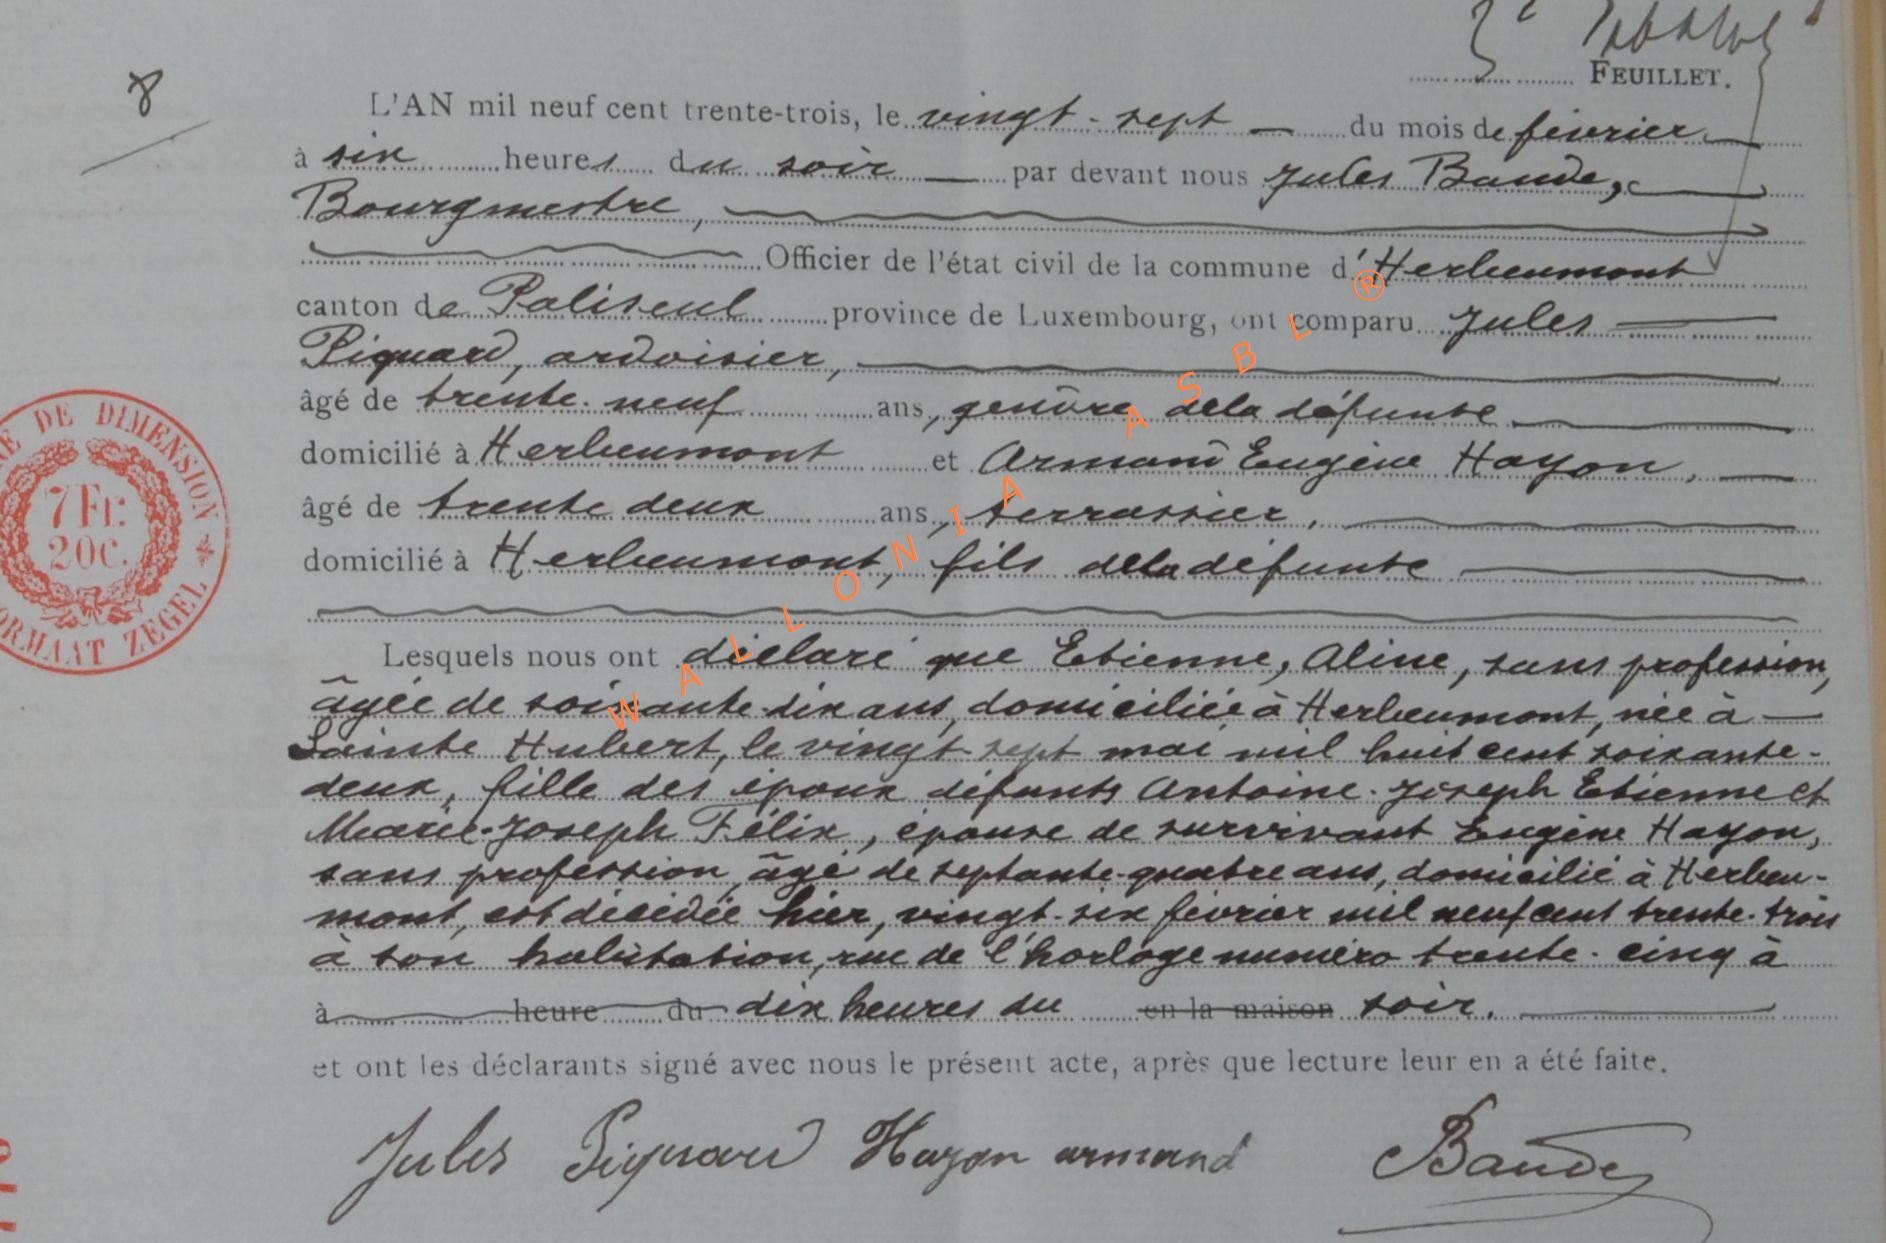 FEUILLET.
8
L'AN mil neuf cent trente-trois, le vingt-sept du mois de février
à six heures du soir par devant nous Jules Baude,
Bourgmestre,
Officier de l'état civil de la commune d'Herbeumont
canton de Paliseul province de Luxembourg, ont comparu Jules
Piquard, ardoisier,
âgé de trente-neuf ans, gendre de la défunte
domicilié à Herbeumont et Armand Eugène Hayon,
âgé de trente deux ans, terrassier,
domicilié à Herbeumont, fils de la défunte
Lesquels nous ont déclaré que Etienne, Aline, sans profession,
âgée de soixante-dix ans, domiciliée à Herbeumont, née à
Sainte Hubert, le vingt-sept mai mil huit cent soixante-
deux, fille des époux défunts Antoine-Joseph Etienne et
Marie-Joseph Félix, épouse de survivant Eugène Hayon,
sans profession, âgé de septante-quatre ans, domicilié à Herbeu-
mont, est décédée hier, vingt-six février mil neuf cent trente-trois
à son habitation, rue de l'horloge numéro trente-cinq à
à heure du dix heures du en la maison soir.
et ont les déclarants signé avec nous le présent acte, après que lecture leur en a été faite.
Jules Piquard Hayon armand Baude
DE DIMENSION
7 Fr.
20 C.
FORMAAT ZEGEL
WALLONIA ASBL ®